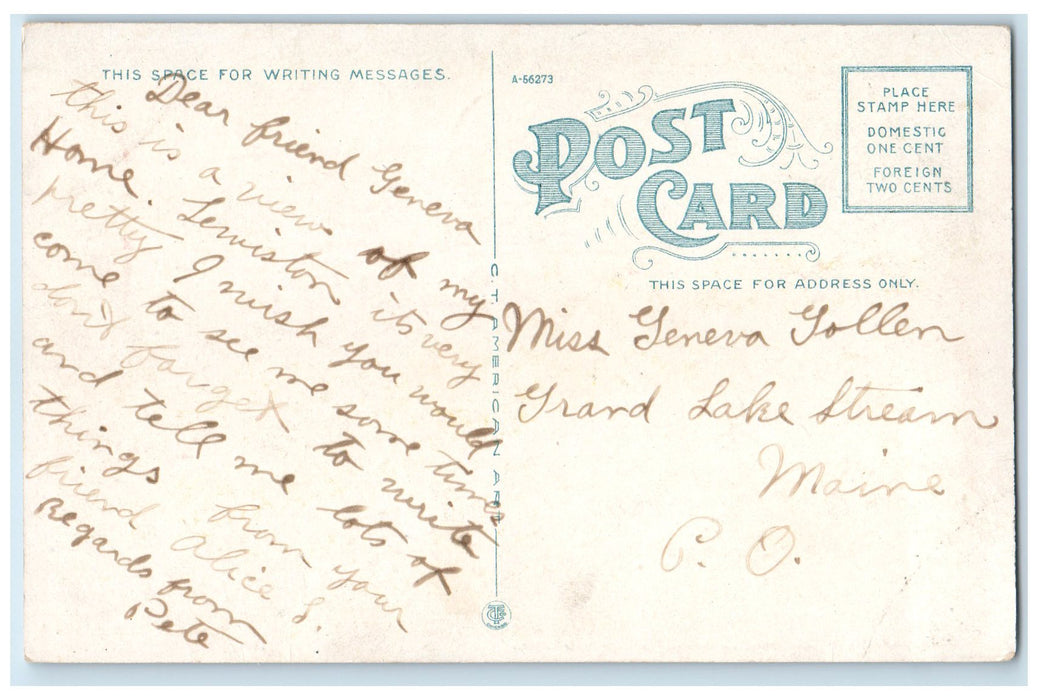 THIS SPACE FOR WRITING MESSAGES.
Dear friend Geneva
this is a view of my
Home. Lewiston its very
pretty I wish you would
come to see me some time
don't forget to write
and tell me lots of
things from your
friend Alice S.
Regards from
Pete
A-66273
C. T. AMERICAN ART
POST
CARD
PLACE
STAMP HERE
DOMESTIC
ONE CENT
FOREIGN
TWO CENTS
THIS SPACE FOR ADDRESS ONLY.
Miss Geneva Gollen
Grand Lake Stream
Maine
P. O.